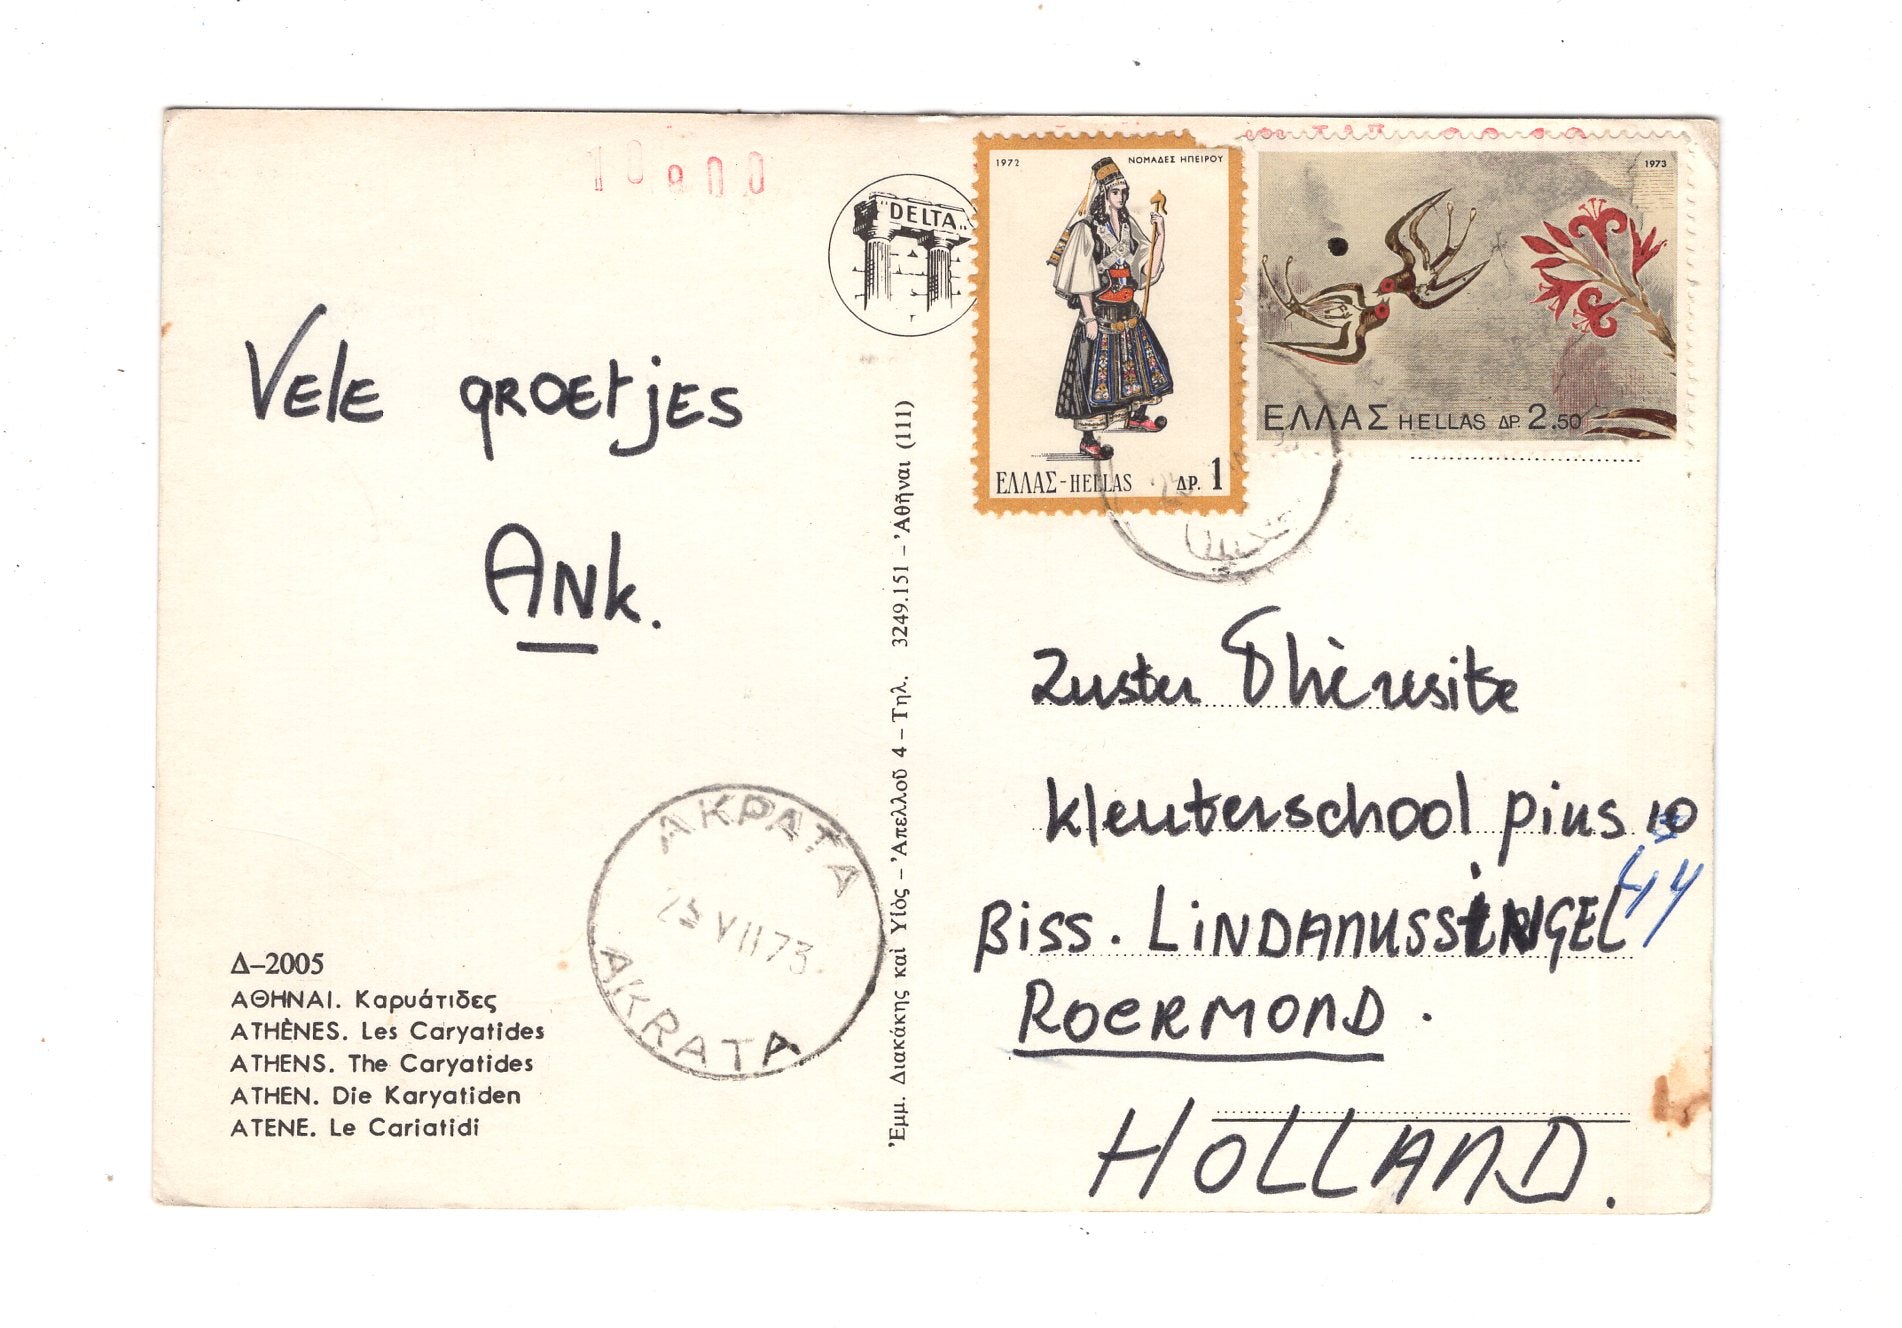 10900
"DELTA"
1972
ΝΟΜΑΔΕΣ ΗΠΕΙΡΟΥ
ΕΛΛΑΣ-HELLAS ΔΡ. 1
1973
ΕΛΛΑΣ HELLAS ΔΡ. 2.50
Vele groetjes
Ank.
Zuster Thèresite
Kleuterschool Pius 10
44
Biss. LINDANUSSINGEL
ROERMOND.
HOLLAND.
ΑΚΡΑΤΑ
25 VII 73
AKRATA
Δ-2005
ΑΘΗΝΑΙ. Καρυάτιδες
ATHÈNES. Les Caryatides
ATHENS. The Caryatides
ATHEN. Die Karyatiden
ATENE. Le Cariatidi
Ἐμμ. Διακάκης καὶ Υἱὸς – Ἀπελλοῦ 4 – Τηλ. 3249.151 – Ἀθῆναι (111)